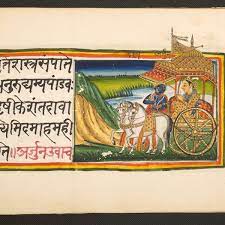 तेशस्त्रसंपाते
नुरुद्यम्यपांडवः
षीकेशंतदावा
क्यमिदमाहमही
ते॥अर्जुनउवाच